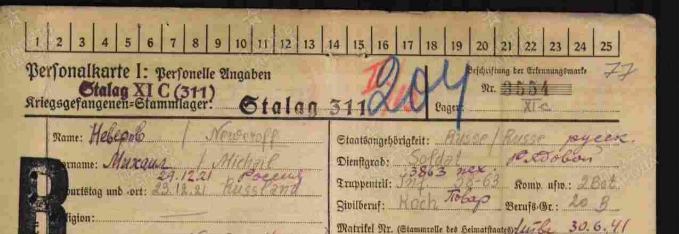 1 2 3 4 5 6 7 8 9 10 11 12 13 14 15 16 17 18 19 20 21 22 23 24 25
Personalkarte I: Personelle Angaben
Stalag XI C (311)
Kriegsgefangenen-Stammlager: Stalag 311
204
Beschriftung der Erkennungsmarke
77
Nr. 3554
Lager: XI-C
Name: Неверов / Neweroff
Vorname: Михаил / Michail
29.12.21 Россия
Geburtstag und -ort: 29.12.21 Russland
Religion:
Staatsangehörigkeit: Russe / Russe русск.
Dienstgrad: Soldat Рядовой
3863 пех.
Truppenteil: Inf. 38-63 Komp. usw.: 2 Bat
Zivilberuf: Koch Повар Berufs-Gr.: 20 B
Matrikel Nr. (Stammrolle des Heimatstaates) 30.6.41